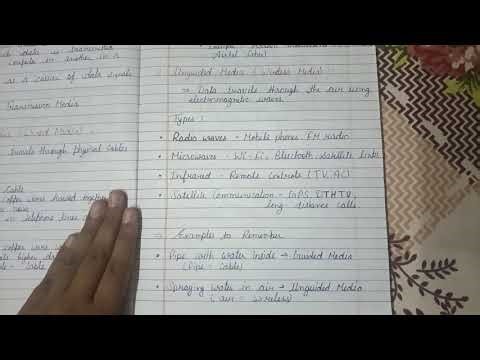 data is transmitted
computer to another in a
as a carrier of data signals
Transmission Media
(Wired Media)
travels through physical cables
Cable
copper wires twisted together
in telephone lines
copper wire
Cable
Airtel Cable)
Unguided Media (Wireless Media)
⇒ Data travels through the air using
electromagnetic waves.
Types :
• Radio waves - Mobile phones, FM radio
• Microwaves - Wi-Fi, Bluetooth, Satellite links
• Infrared - Remote Controls (TV, AC)
• Satellite Communication - GPS, DTH TV,
long distance calls.
Examples to Remember
• Pipe with water inside → Guided Media
(Pipe = Cable)
• Spraying water in air → Unguided Media
(air = wireless)